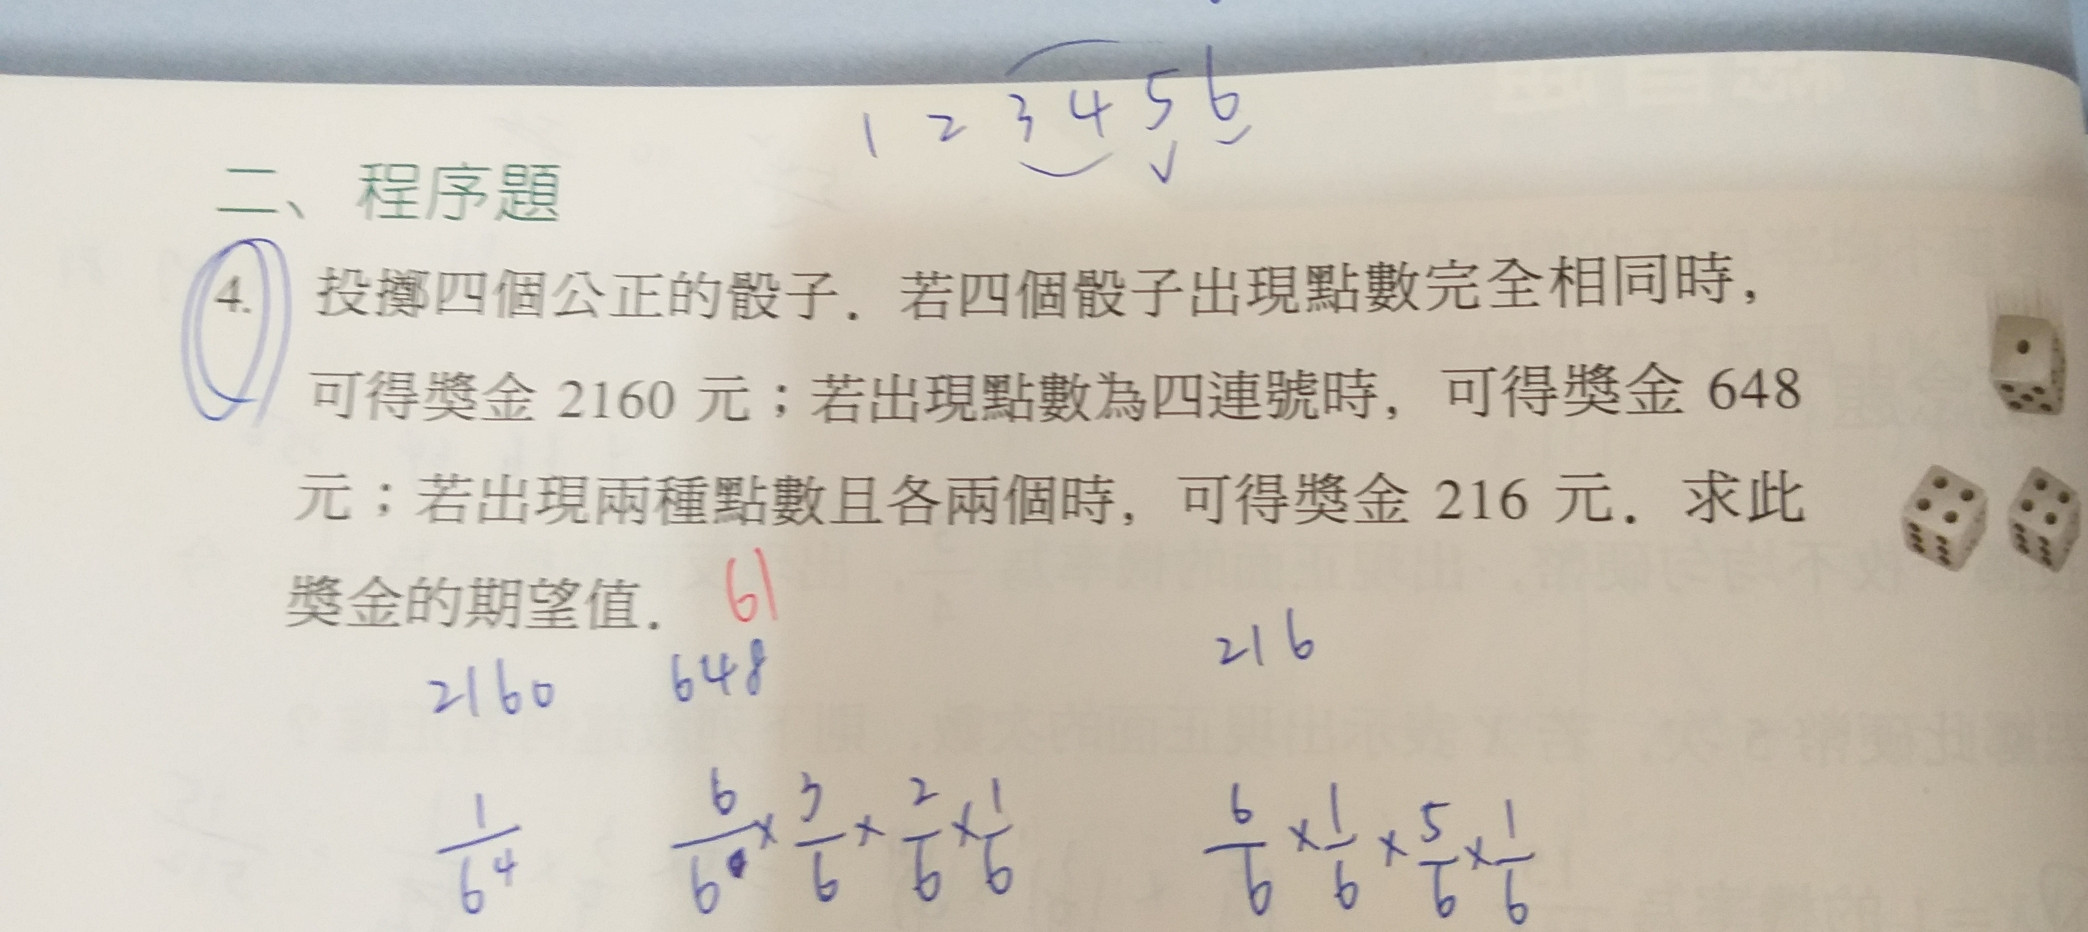 1 2 3 4 5 6
二、程序題
4. 投擲四個公正的骰子．若四個骰子出現點數完全相同時，
可得獎金 2160 元；若出現點數為四連號時，可得獎金 648
元；若出現兩種點數且各兩個時，可得獎金 216 元．求此
獎金的期望值． 61
2160 648 216
1/6^4 6/6 × 3/6 × 2/6 × 1/6 6/6 × 1/6 × 5/6 × 1/6